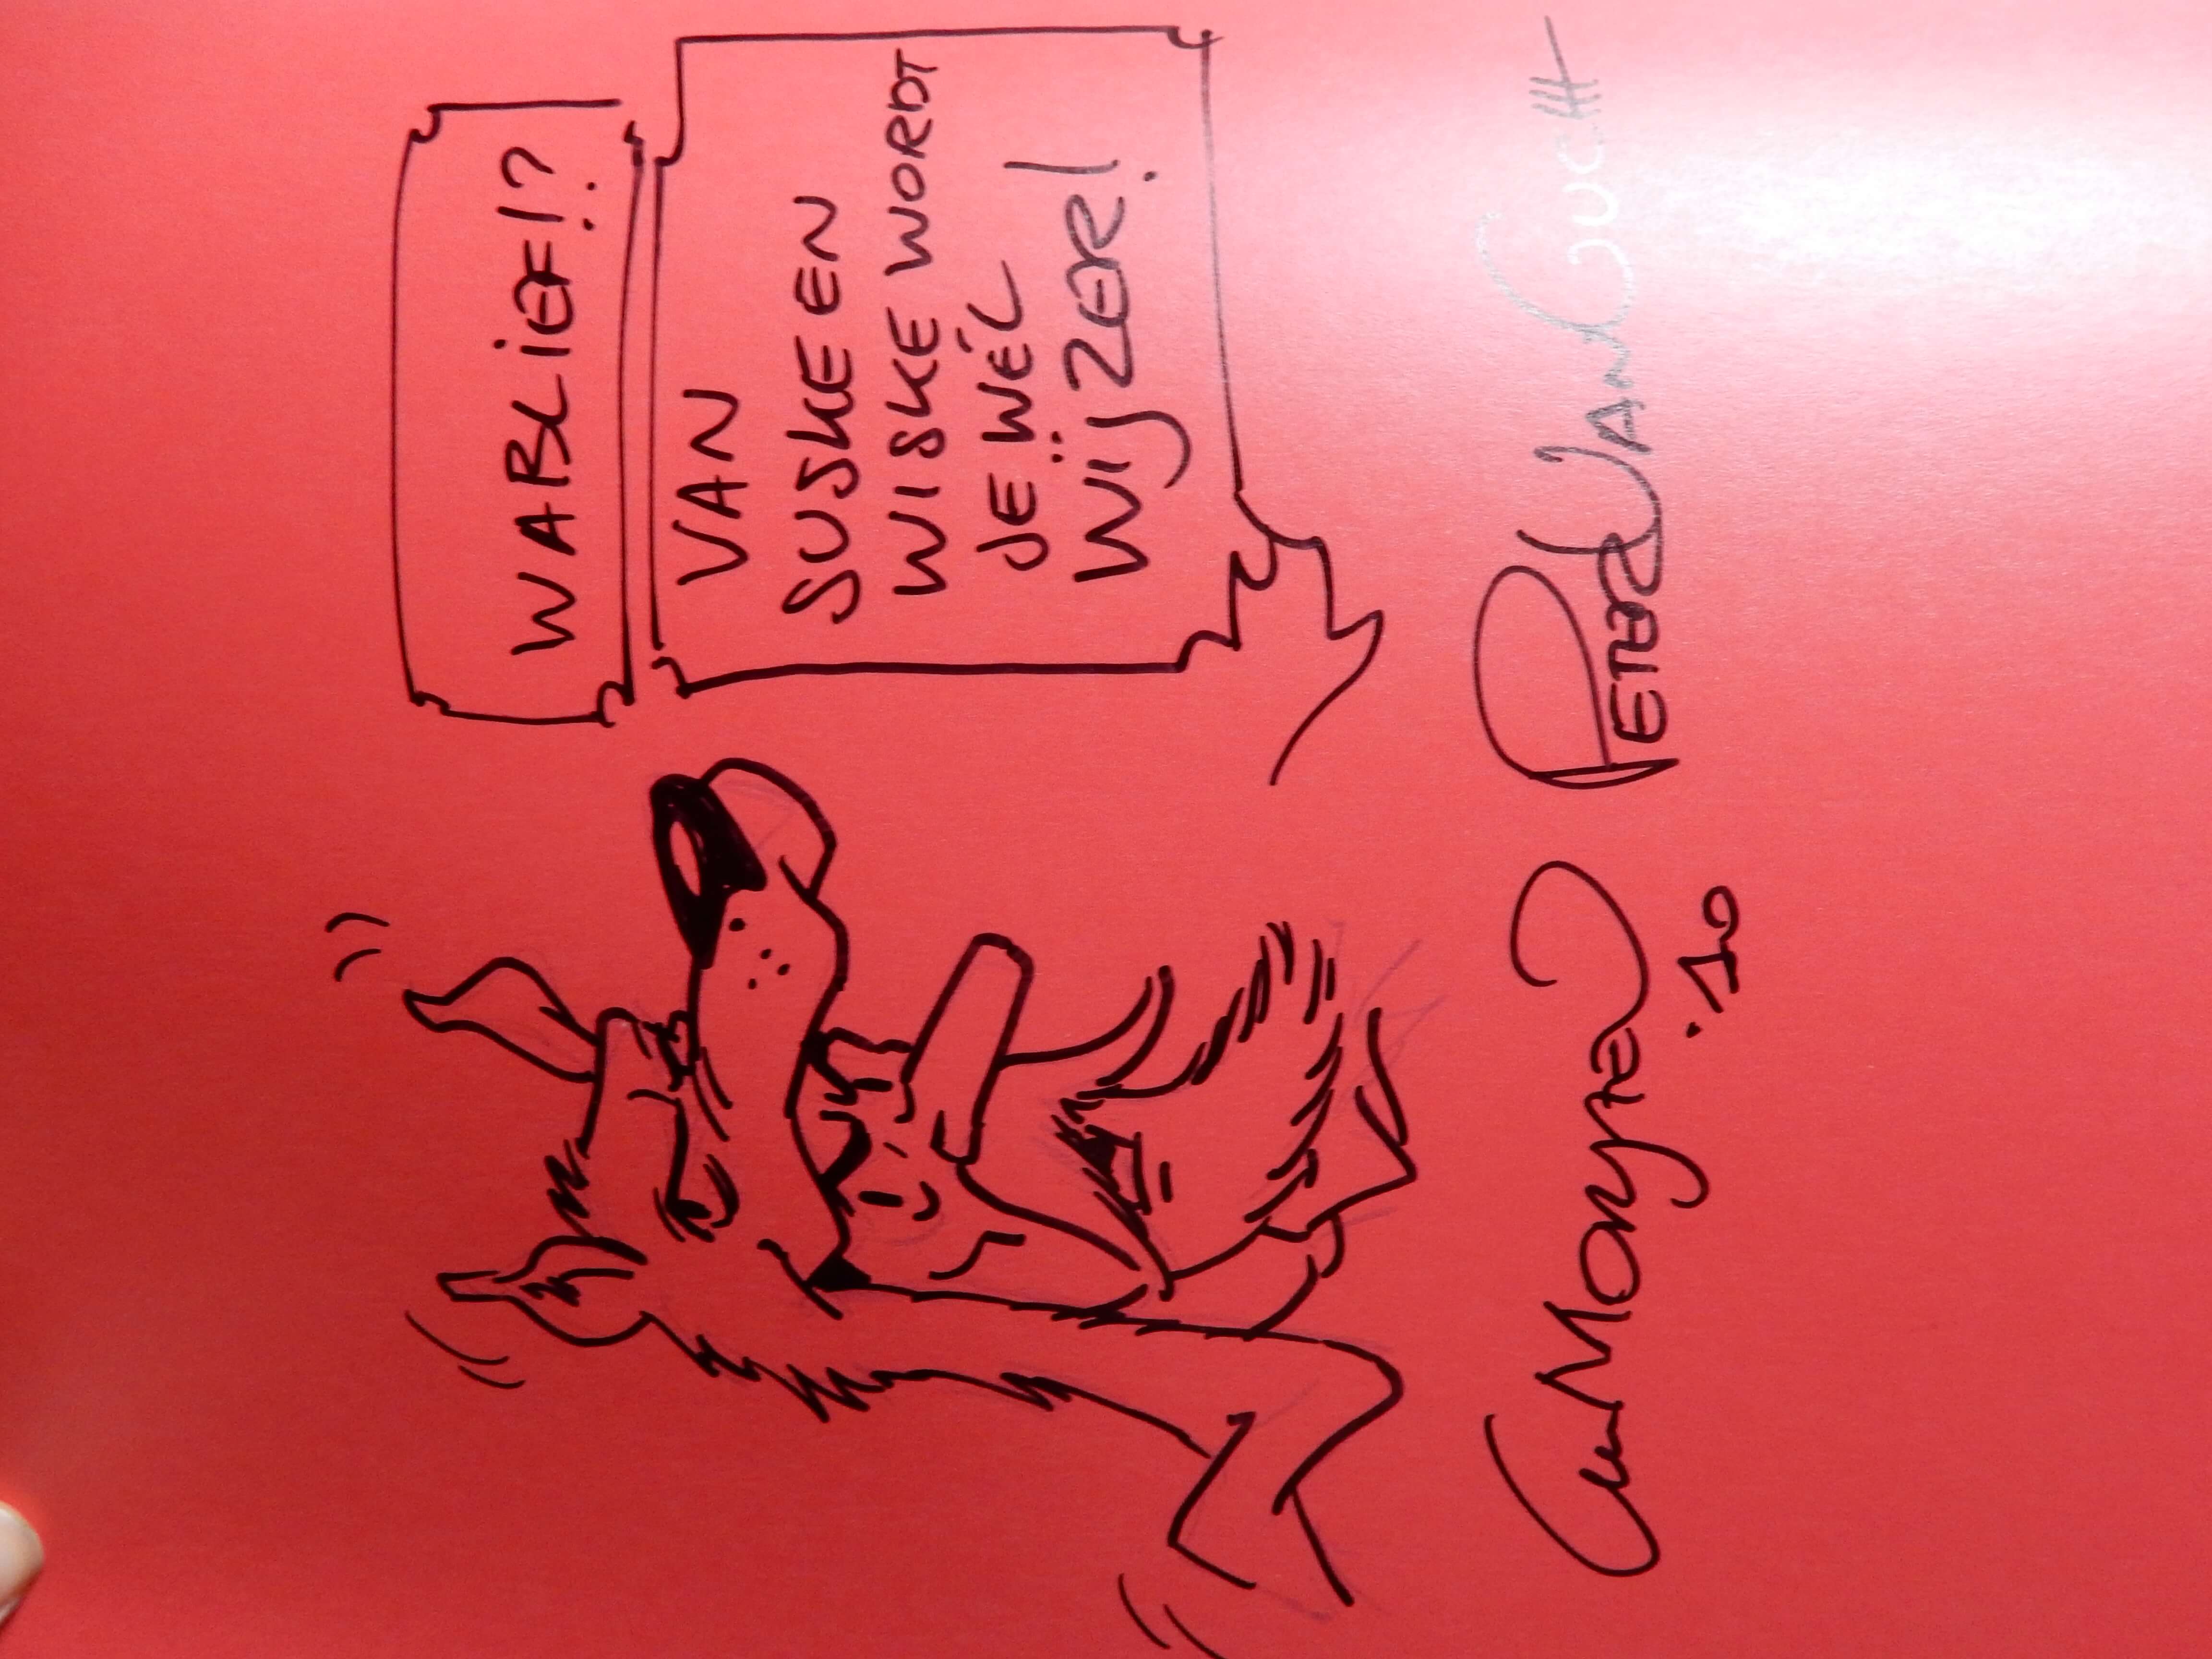 WABLIEF!?
VAN
SUSKE EN
WISKE WORDT
JE WÉL
WIJZER!
Luc Morjaeu
PETER VAN GUCHT
'10